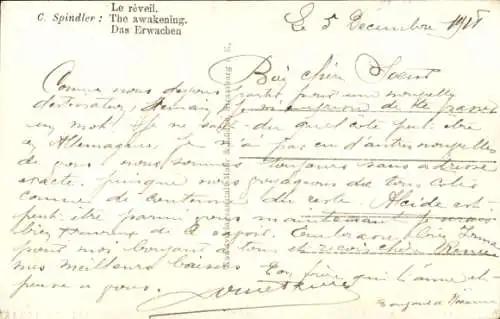 Le réveil.
C. Spindler: The awakening.
Das Erwachen
Le 5 Décembre 1918
Bien chère Soeur
Comme nous devons partir pour un nouvelle
destination, demain
un mot. Je ne sais du quel côté peut être
en Allemagne. Je n'ai pas eu d'autres nouvelles
de vous nous sommes toujours sans adresse
exacte, puisque nous voyageons de tous cotés
comme de coutume, du reste Alcide est
peut-être parmi vous maintenant
bien heureux de le savoir. Embrasse
pour moi bonjour à tous et reçois chère
mes meilleurs baisers Ton frère qui t'aime et
pense a vous